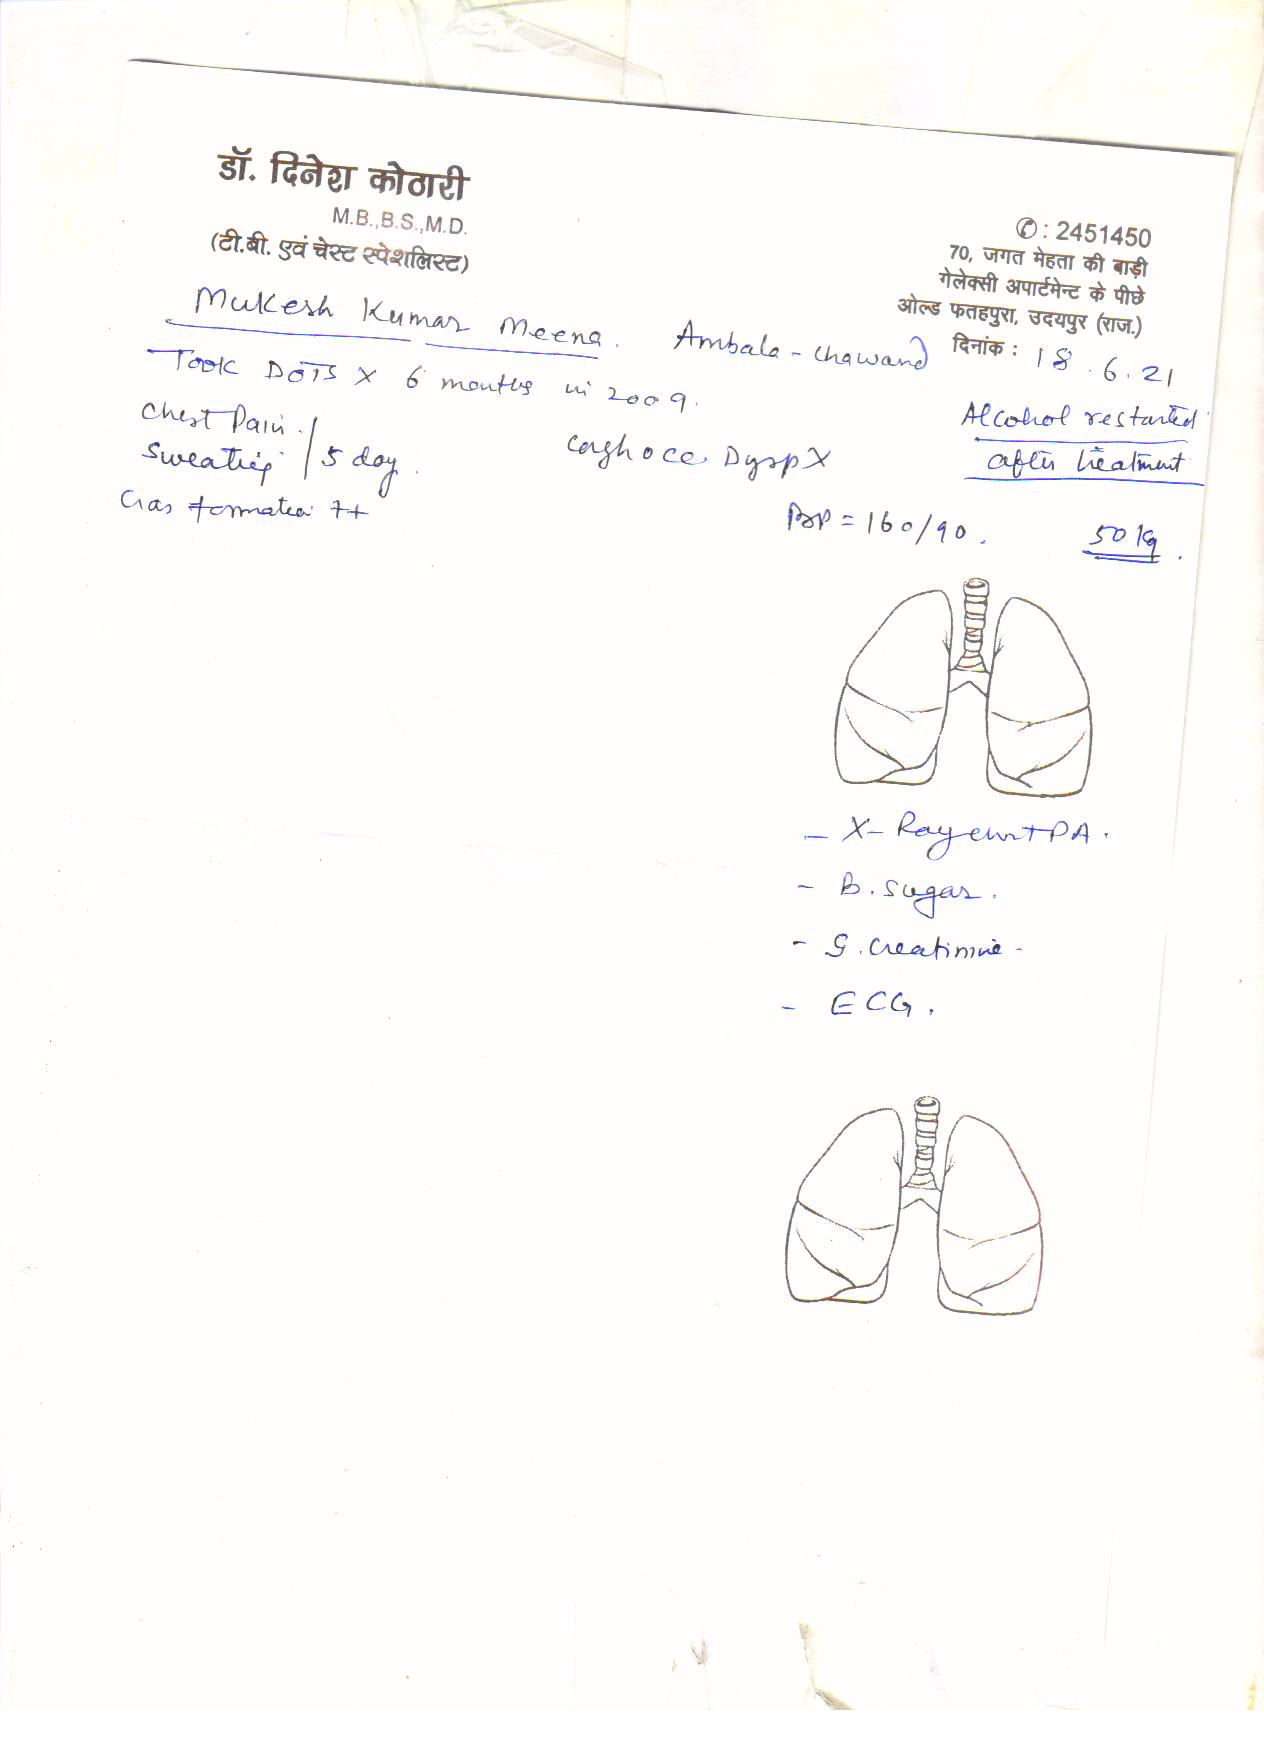 डॉ. दिनेश कोठारी
M.B.,B.S.,M.D.
(टी.बी. एवं चेस्ट स्पेशलिस्ट)
✆ : 2451450
70, जगत मेहता की बाड़ी
गेलेक्सी अपार्टमेन्ट के पीछे
ओल्ड फतहपुरा, उदयपुर (राज.)
दिनांक : 18.6.21
Mukesh Kumar Meena. Ambala - Chawand
Took DOTS X 6 months in 2009.
Alcohol restarted
after treatment
Chest Pain.
Sweating / 5 day.
Cough occ. Dysp X
Gas formation ++
BP = 160/90.
50 kg.
- X-Ray PA.
- B. Sugar.
- S. Creatinine -
- ECG.